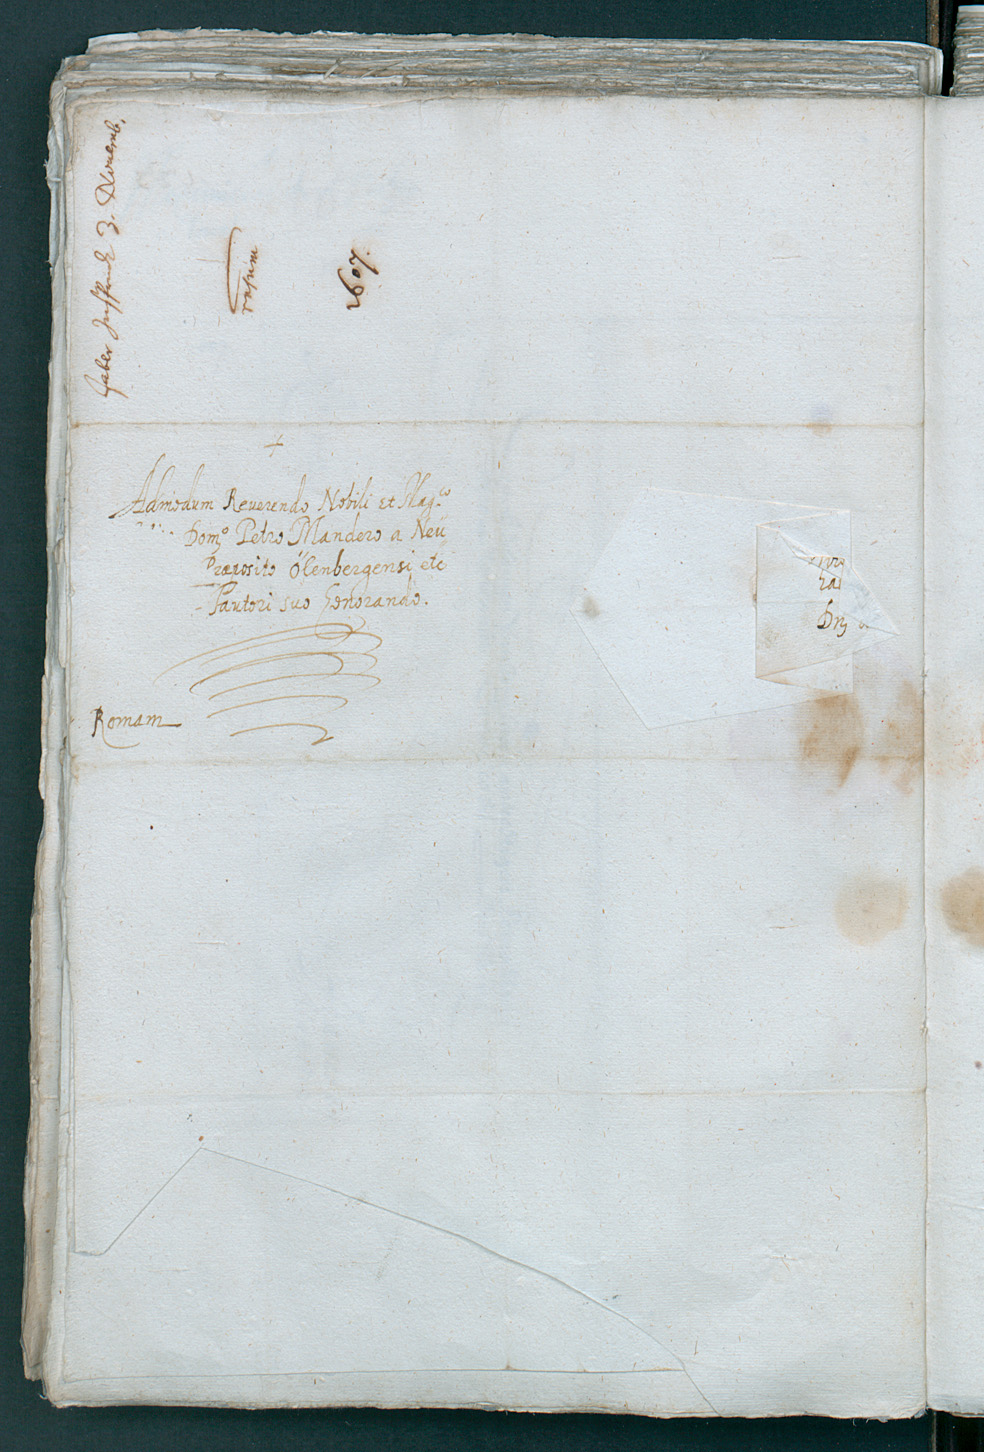 Faber 3. Nouemb.
1607.
Admodum Reuerendo Nobili et Mag.co
Dom.o Petro Mandero a Neü
Præposito Ölenbergensi etc
Fautori suo honorando.
Romam